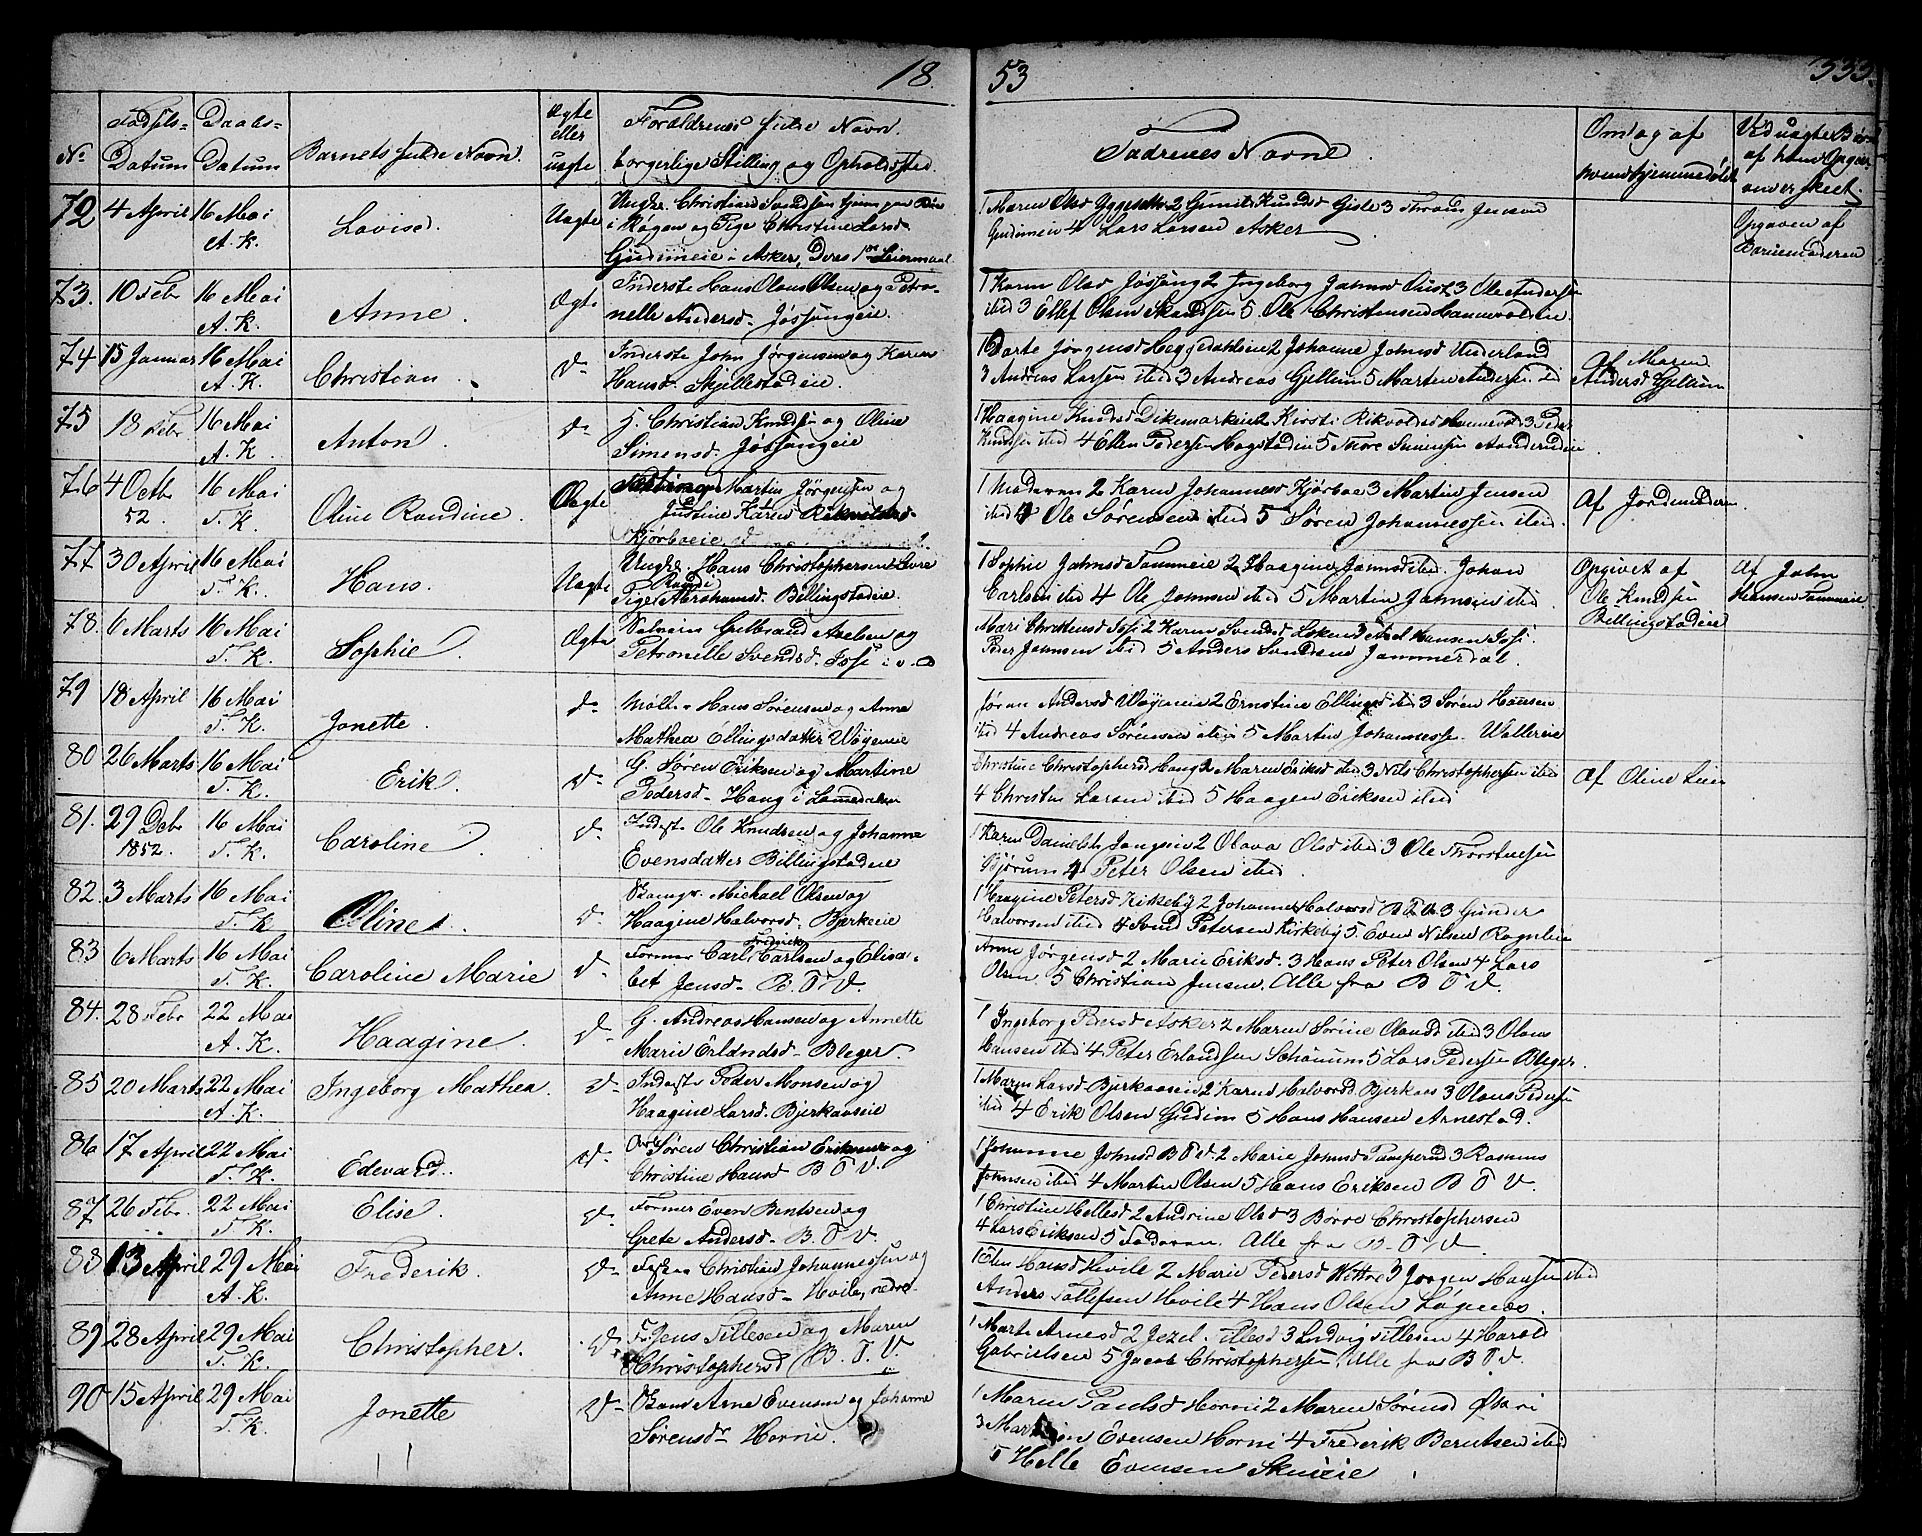 18
53
333.
No
Fødsels-
Datum
Daabs-
Datum
Barnets fulde Navn.
Ægte
eller
uægte
Forældrenes fulde Navn.
borgerlige Stilling og Opholdsted
Fadrenes Navne
Om dag af
hvem hjemmedøbt
Ved uægte Børn
af hvem Opgav-
en er skeet.
72 4 April 16 Mai
A. K.
Lovise.
Uægte
Ungkr. Christian Svendsen
i Røgen og Pige Christine Larsd.
Gudimeie i Asker, Deres 1ste Leiermaal
1 Maren Olsd 2 Gunild Knudsd Gisle 3 Jensen
Gudimeie 4 Lars Larsen Asker
Opgaven af
Barnemoderen
73. 10 Febr 16 Mai
A. K.
Anne.
Ægte
Inderste Hans Olaus Olsen og Petro-
nelle Andersd. Jøssongeie.
1 Karen Olsd Jøssong 2 Ingeborg Jansd 3 Ole Andersen
ibid 3 Ellef Olsen 5 Ole Christensen Hanevoldeie.
74 15 Januar 16 Mai
A. K.
Christian.
d-
Inderste John Jørgensen og Karen
Hansd. Skjellestadeie.
1 Dorte Jørgensd Heggedahlseie 2 Johanne Johnsd Underland
3 Andreas Larsen ibid 3 Andreas Gjellum 5 Marten Andersen ibid
Af Maren
Andersd Gjellum
75 18 Febr. 16 Mai
A. K.
Anton.
d-
G. Christian Knudsen og Oline
Simensd. Jøssongeie
1 Haagine Knudsd Dikemarkeie 2 Kirsti Rikvoldsd Hannevold 3 Peder
Knudsen ibid 4 Ellen Pedersen Hogstadeie 5 Thore Simensen
76 4 Octb 16 Mai
52. T. K.
Oline Randine.
Uægte
Martin Jørgensen og
Justine Karen
Kjørboeie
1 Moderen 2 Karen Johannesd Kjørboe 3 Martin Jensen
ibid 4 Ole Sørensen ibid 5 Søren Johannessen ibid.
Af Jordemoderen
77 30 April 16 Mai
T. K.
Hans.
Uægte
Ungkr. Hans Christophersen
Randi
Pige Abrahamsd. Billingstadeie.
1 Sophie Johnsd Tanumeie 2 Haagine Johnsd ibid. Johan
Carlsen ibid 4 Ole Johnsen ibid 5 Martin Johnsen ibid.
Opgivet af
Ole Knudsen
Billingstadeie
Af John
Hansen Tanumeie
78. 6 Marts 16 Mai
T. K.
Sophie.
Ægte
Gulbrand Axelsen og
Petronelle Svendsd.
Mari Christensd 2 Karen Svendsd 3 Axel Hansen
Peder Johnsen ibid 5 Anders Svendsen Jammerdal.
79 18 April 16 Mai
T. K.
Jonette.
d-
Hans Sørensen og Anne
Mathea Ellingsdatter Wøyeneie
Jøran Andersd Wøyeneie 2 Ernstine Ellingsd ibid 3 Søren Hansen
ibid 4 Andreas Sørensen ibid 5 Martin Johannesse. Wallereie
80 26 Marts 16 Mai
T. K.
Erik.
d-
G. Søren Eriksen og Martine
Pedersd- Haug i Lommedalen
Christine Christophersd Haug 2 Maren Eriksd ibid 3 Nils Christophersen ibid
4 Christen Larsen ibid 5 Haagen Eriksen ibid
Af Oline Lien
81. 29 Debr 16 Mai
1852. T. K.
Caroline.
d-
Inderst Ole Knudsen og Johanne
Evensdatter Billingstadeie
1 Karen Danielsd 2 Olava Olsd ibid 3 Ole Thorstensen
Bjørum 4 Peter Olsen ibid.
82. 3 Marts 16 Mai
T. K.
Oline.
d-
Michael Olsen og
Haagine Halvorsd. Bjerkeeie
1 Haagine Petersd Kirkeby 2 Johanne Halvorsd 3 Gunder
Halvorsen ibid 4 Svend Petersen Kirkeby 5 Even Nilsen
83 6 Marts 16 Mai
T. K.
Caroline Marie
d-
Fredrik
Former Carl Carlsen og Elisa-
bet Jensd- B. T. V.
Anne Jørgensd 2 Marie Eriksd. 3 Hans Peter Olsen 4 Lars
Olsen. 5 Christian Jensen. Alle fra B T V.
84. 28 Febr 22 Mai
A. K.
Haagine.
d-
G. Andreas Hansen og Annette
Marie Erlandsd- Bleger.
1 Ingeborg Pedersd Asker 2 Maren Sørine Olausd ibid 3 Olaus
Hansen ibid 4 Peter Erlandsen 5 Lars Pedersen Bleger.
85 20 Marts 22 Mai
A. K.
Ingeborg Mathea.
d-
Inderst Peder Monsen og
Haagine Larsd. Bjerkaaseie
1 Maren Larsd Bjerkaaseie 2 Karen Halvorsd Bjerkaas 3 Olaus Pedersen
ibid 4 Erik Olsen Gudim 5 Hans Hansen Arnestad.
86. 17 April 22 Mai
T. K.
Edevard.
d-
Søren Christian Eriksen og
Christine Hansd B T V.
1 Johanne Johnsd B T V. 2 Marie Johnsd 3 Rasmus
Johnsen ibid 4 Martin Olsen 5 Hans Eriksen B T V.
87 26 Febr. 22 Mai
T. K.
Elise.
d-
Former Even Bentsen og
Grete Andersd- B. T. V.
1 Christine Hellesd 2 Andrine Olsd 3 Børre Christophersen
4 Lars Eriksen 5 Faderen. Alle fra B. T. V.
88 13 April 29 Mai
A. K.
Frederik.
d-
Christian Johannessen og
Anne Hansd- Hvile, nedre.
1 Hansd Hvile 2 Marie Pedersd Wettre 3 Jørgen Hansen ibid
Anders Tollefsen Hvile 4 Hans Olsen Løgenæs.
89 28 April 29 Mai
T. K.
Christopher.
d-
F. Jens Tillesen og Maren
Christophersd B. T. V.
1 Marte Arnesd 2 Jezel. Tillesd 3 Ludvig Tillesen 4 Harold
Gabrielsen 5 Jacob Christophersen, Alle fra B T V.
90 15 April 29 Mai
T. K.
Jonette
d-
Arne Evensen og Johanne
Sørensdr Horni.
1 Maren Paulsd Horni 2 Maren Sørensd
3 Evensen Horni 4 Frederik Berntsen ibid
5 Helle Evensen